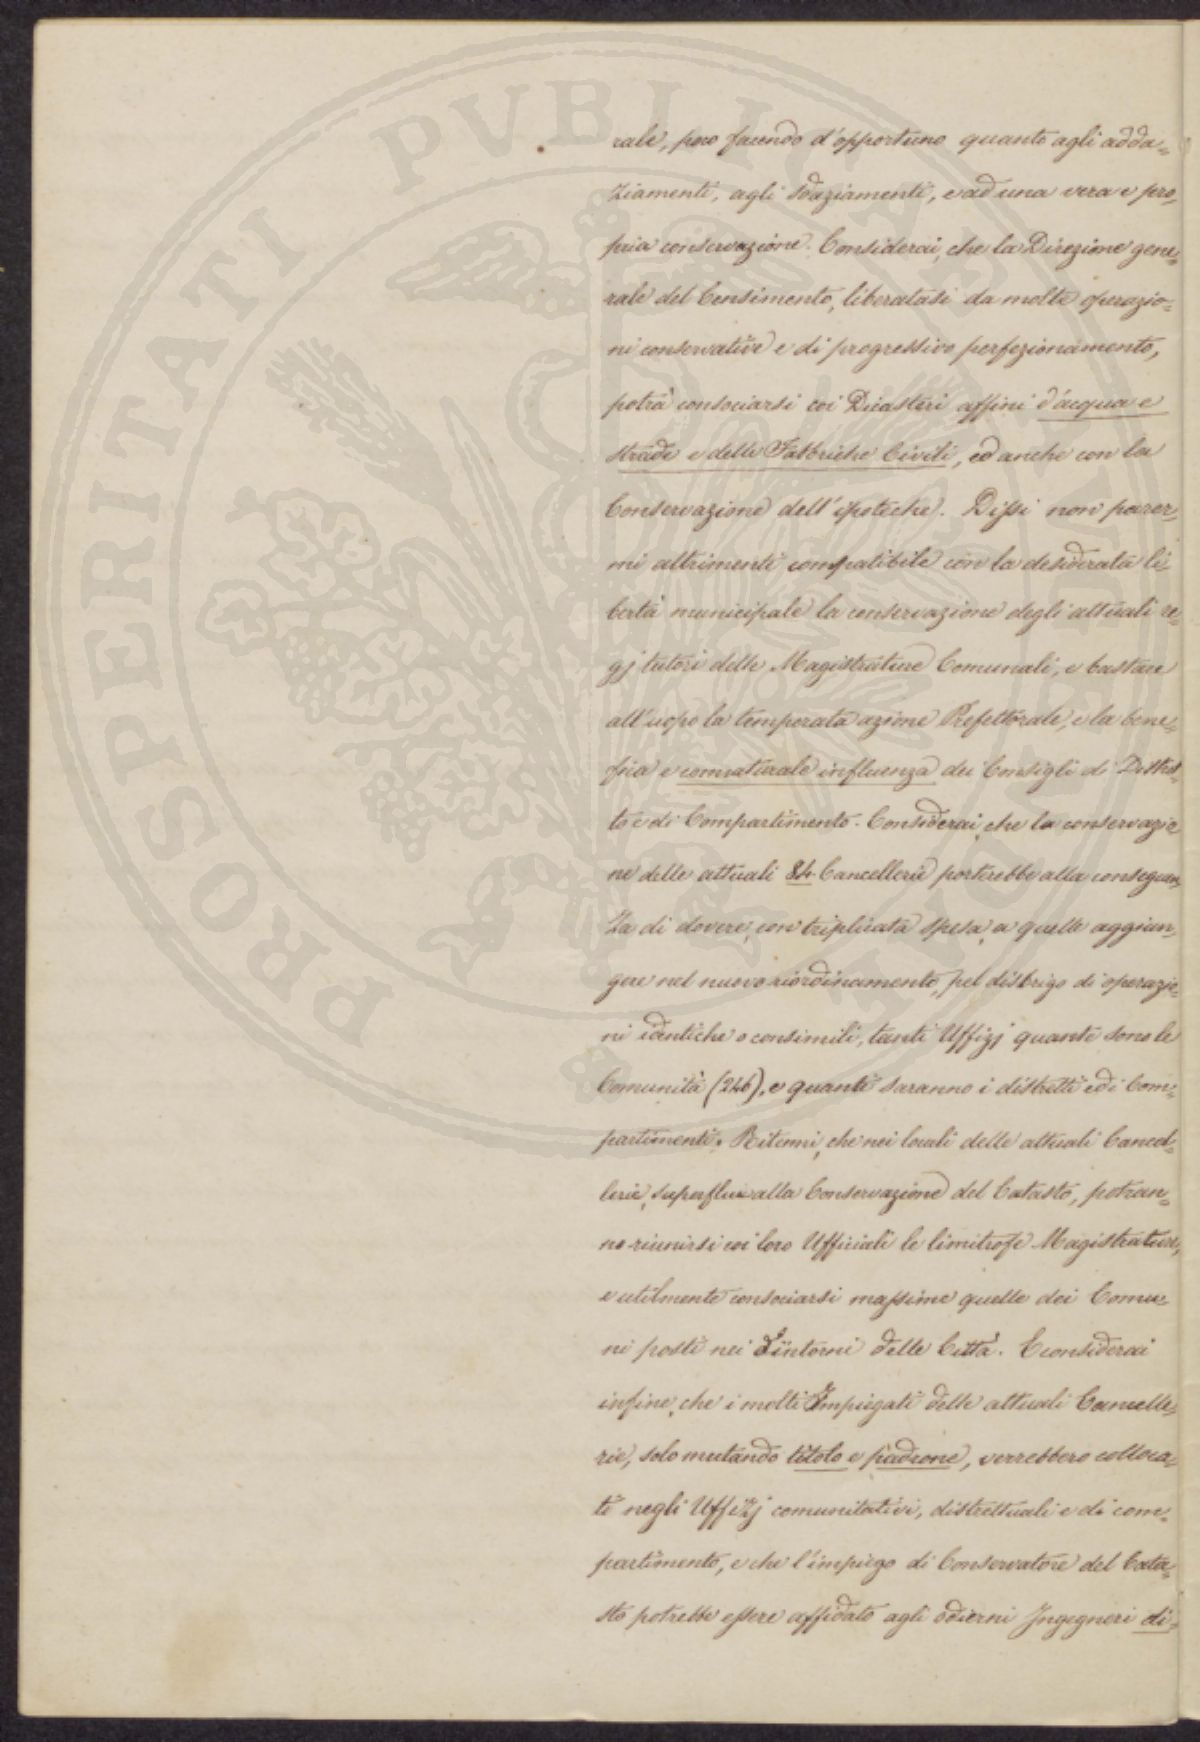 rale, pero facendo d'opportuno quanto agli adda=
ziamenti, agli sdaziamenti, e ad una vera e pro=
pria conservazione. Considerai, che la Direzione gene=
rale del Censimento, liberatasi da molte operazio=
ni conservative e di progressivo perfezionamento,
potrà consociarsi coi Dicasteri affini d'acqua e
strade e delle Fabbriche Civili, ed anche con la
Conservazione dell'ipoteche. Dissi non parer=
mi altrimenti compatibile con la desiderata li=
bertà municipale la conservazione degli attuali re=
gj tutori delle Magistrature Comunali, e bastare
all'uopo la temperata azione Prefettorale, e la bene=
fica e connaturale influenza dei Consigli di Distret=
to e di Compartimento. Considerai, che la conservazio=
ne delle attuali 84 Cancellerie porterebbe alla conseguen=
za di dovere, con triplicata spesa, a quelle aggiun=
gere nel nuovo riordinamento, pel disbrigo di operazio=
ni identiche o consimili, tanti Uffizj quante sono le
Comunità (246), e quanti saranno i distretti ed i Com=
partimenti. Ritenni, che nei locali delle attuali Cancel=
lerie, superflui alla Conservazione del Catasto, potran=
no riunirsi coi loro Ufficiali le limitrofe Magistrature,
e utilmente consociarsi massime quelle dei Comu=
ni posti nei dintorni delle Città. E considerai
infine, che i molti Impiegati delle attuali Cancelle=
rie, solo mutando titolo e padrone, verrebbero colloca=
ti negli Uffizj comunitativi, distrettuali e di com=
partimento, e che l'impiego di Conservatore del Cata=
sto potrebbe essere affidato agli odierni Ingegneri di=
PROSPERITATI PVBLICAE